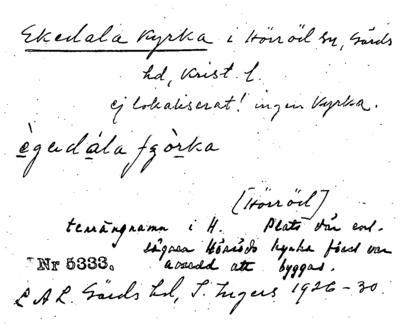 Ekedala Kyrka i Hörröd sn, Gärds
hd, Krist. l.
ej lokaliserat! ingen Kyrka.
ègɘdála fçòrka
[Hörröd]
terrängnamn i H. Plats där enl.
sägnen Hörröds kyrka först var
avsedd att byggas.
Nr 5333.
L A L. Gärds hd, I. Ingers 1926-30.